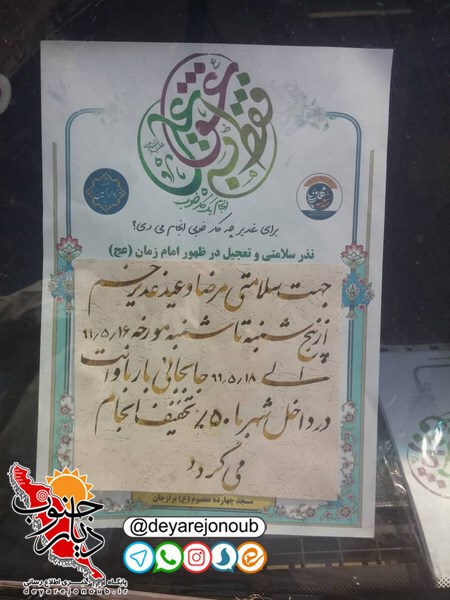 فقط به عشق علی
انجام یک کار خوب
برای غدیر چه کار خوبی انجام می دی؟
نذر سلامتی و تعجیل در ظهور امام زمان (عج)
جهت سلامتی مرضا و عید غدیر خم
از پنج شنبه تا شنبه مورخه ۹۹٫۵٫۱۶
الی ۹۹٫۵٫۱۸ جابجائی بار با وانت
در داخل شهر با ۵۰٪ تخفیف انجام
می گردد
مسجد چهارده معصوم (ع) برازجان
@deyarejonoub
دیار جنوب
پایگاه خبری اطلاع رسانی
deyarejonoub.ir